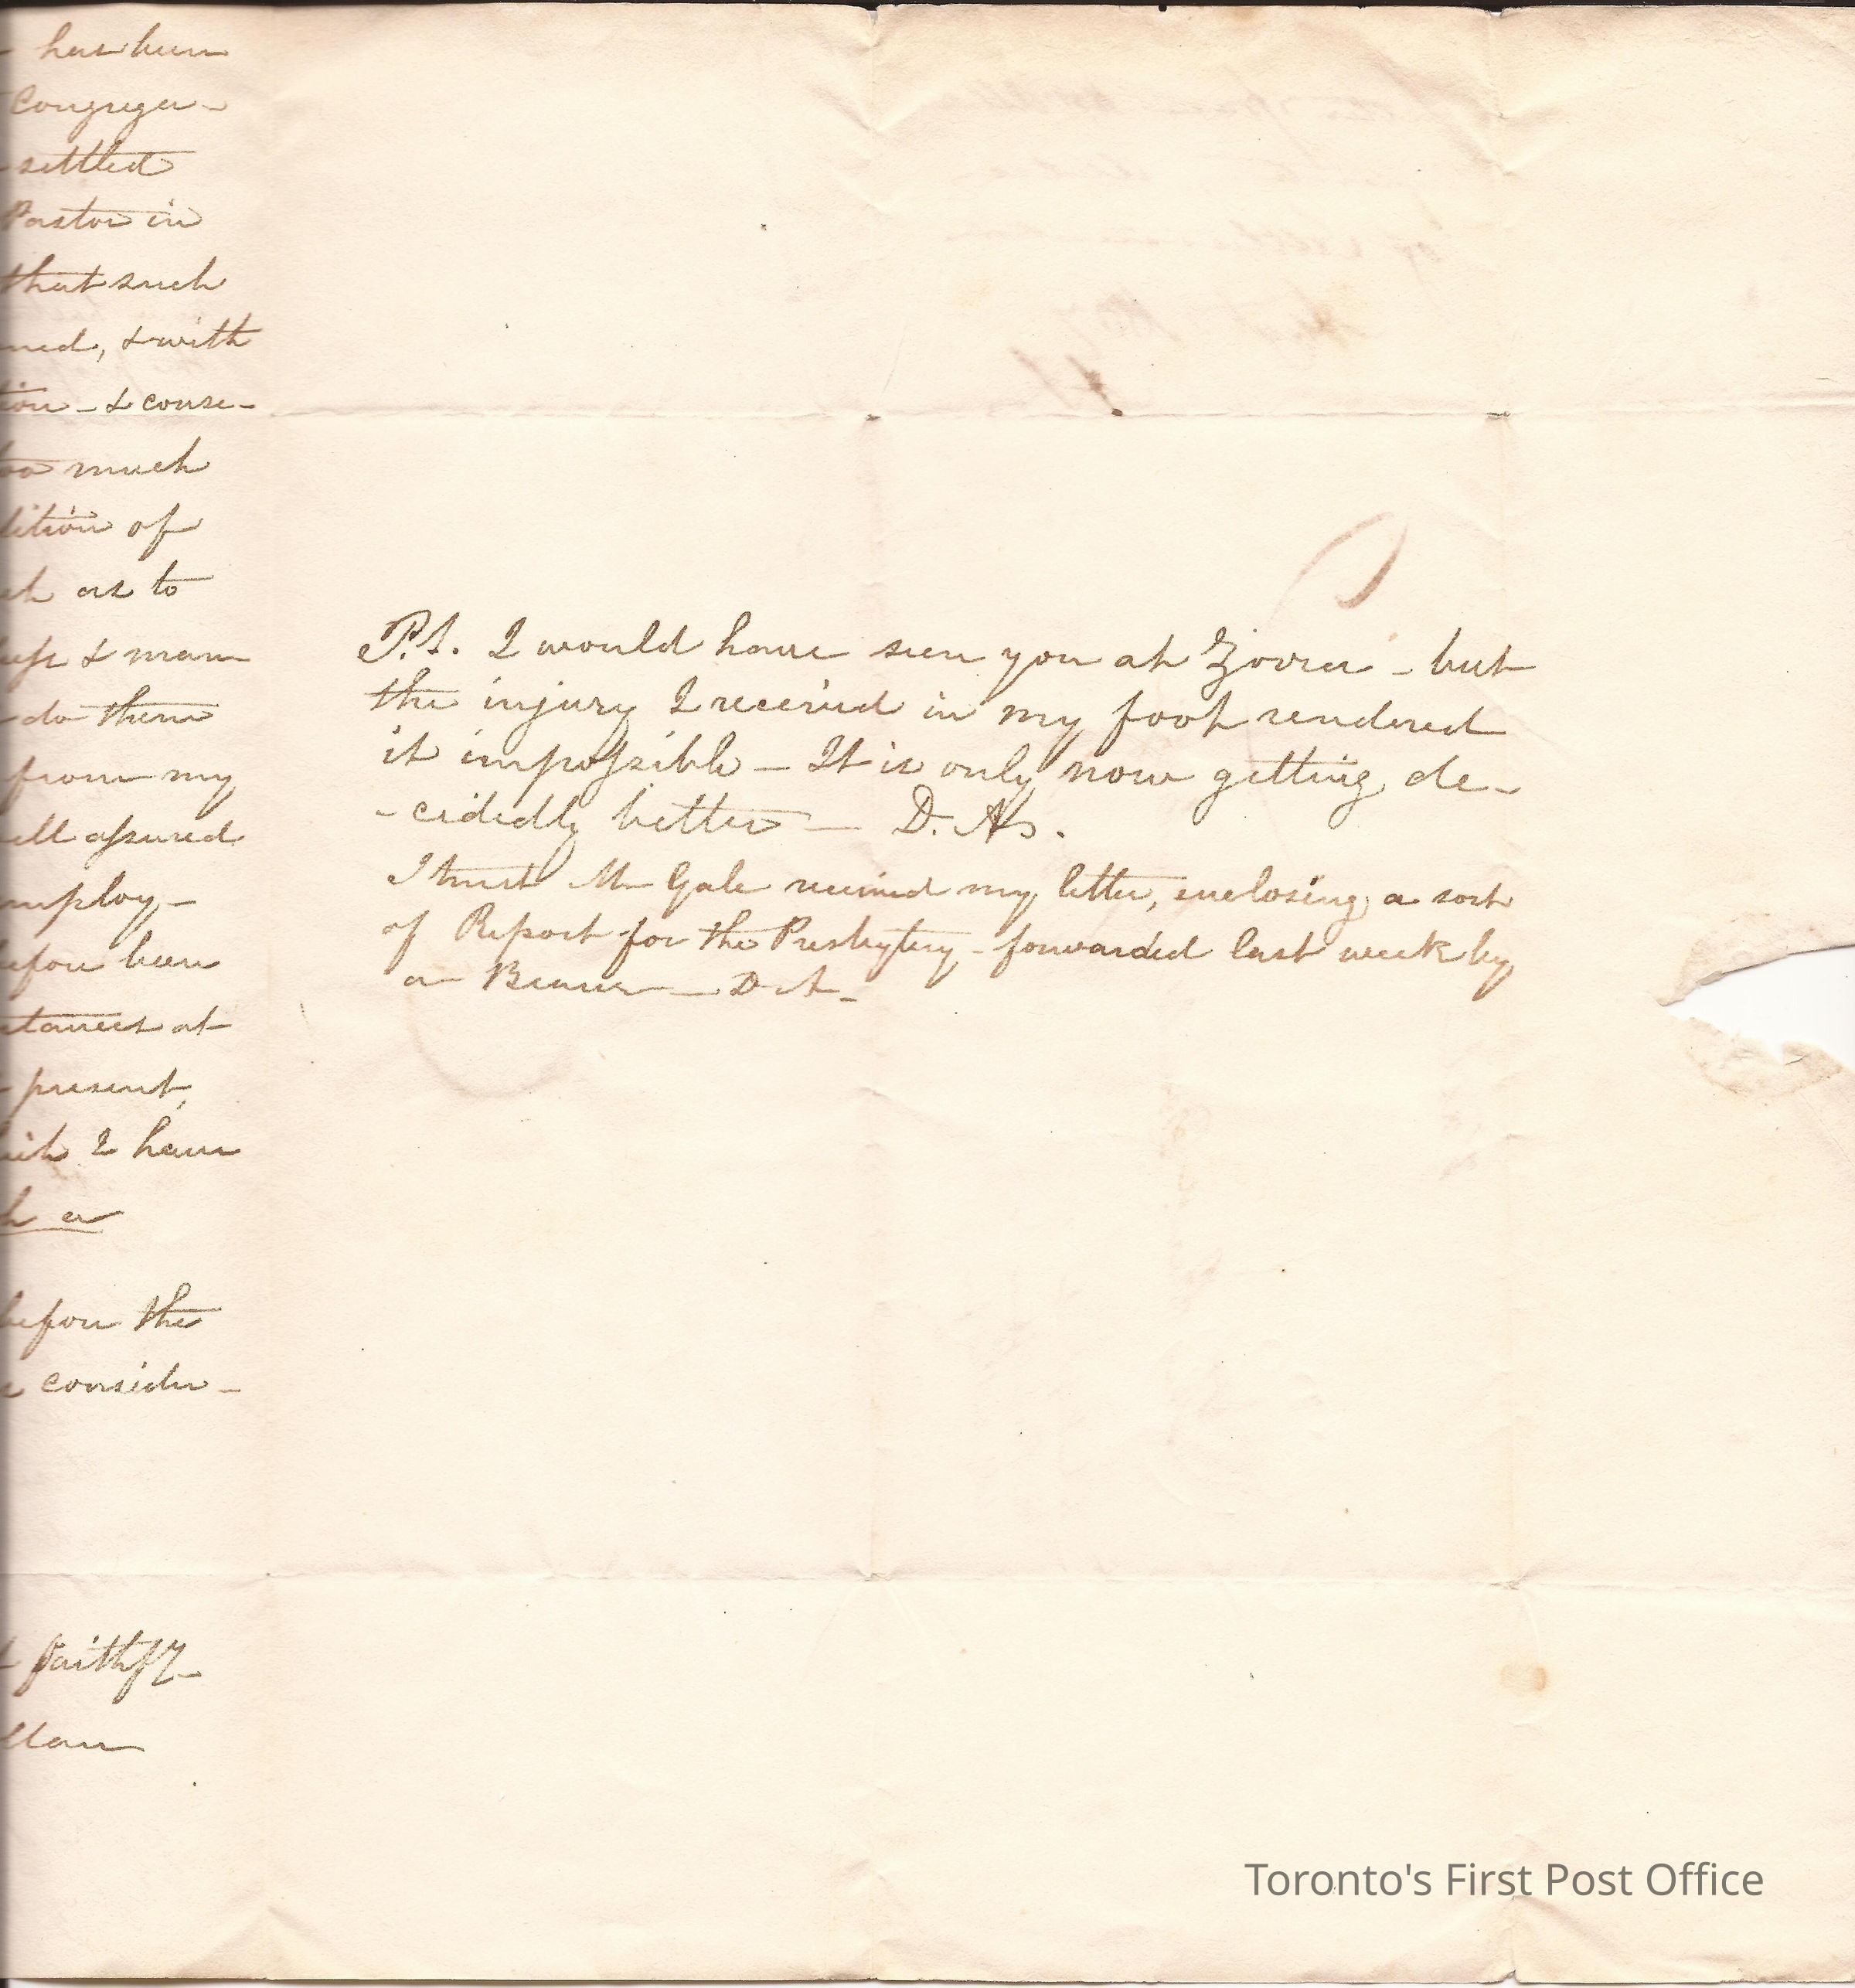 has been
Congrega-
settled
Pastor in
that such
ned, & with
tion - & conse-
too much
dition of
ch as to
& man
do them
from my
ell assured
mploy-
before been
stances at
present,
I have
h a
before the
conside-
faithfy
llan
P.S. I would have seen you at Zorra - but
the injury I received in my foot rendered
it impossible - It is only now getting de-
-cidedly better - D. A.
I trust Mr Gale received my letter, enclosing a sort
of Report for the Presbytery - forwarded last week by
a Bearer - D A -
Toronto's First Post Office